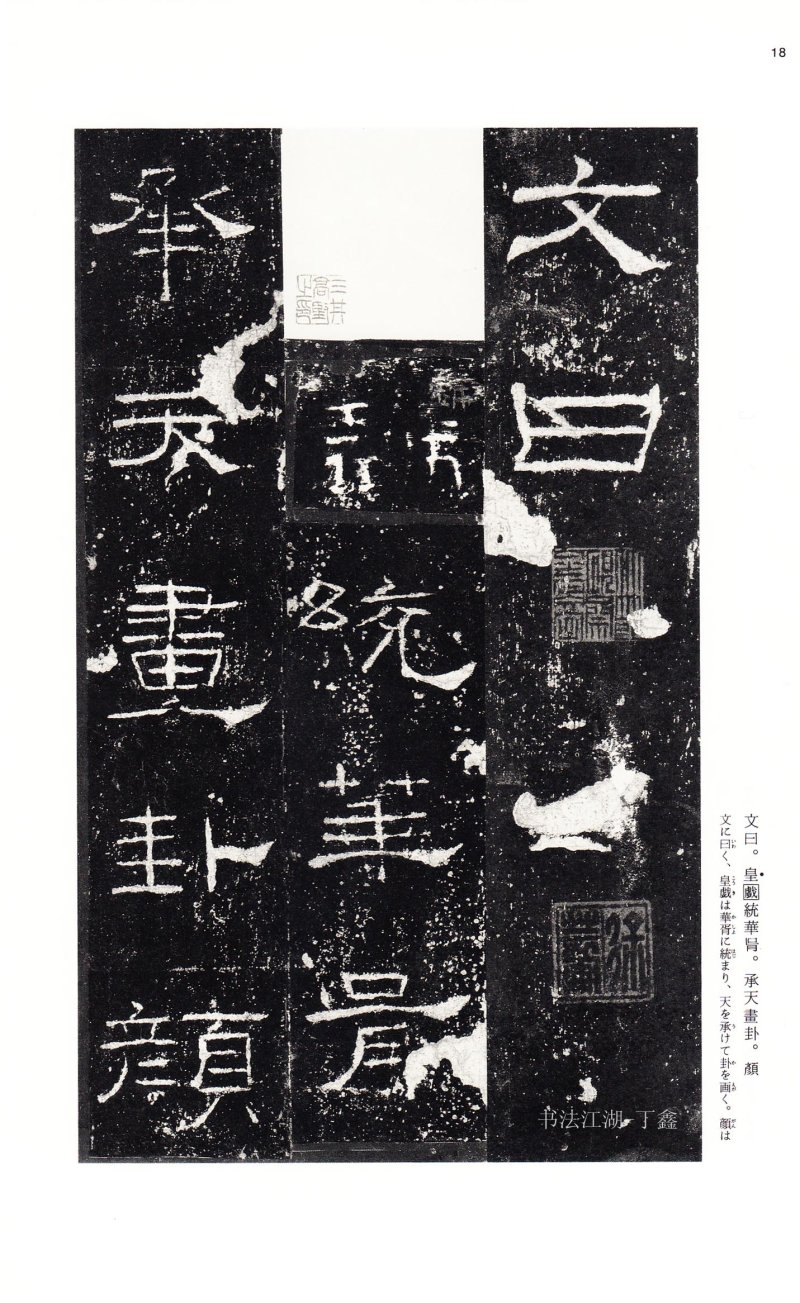 18
文曰
統華胥
承天畫卦顏
文曰。皇戲統華胥。承天畫卦。顏
文に曰く、皇戯は華胥に統まり、天を承けて卦を画く。顔は
书法江湖-丁鑫